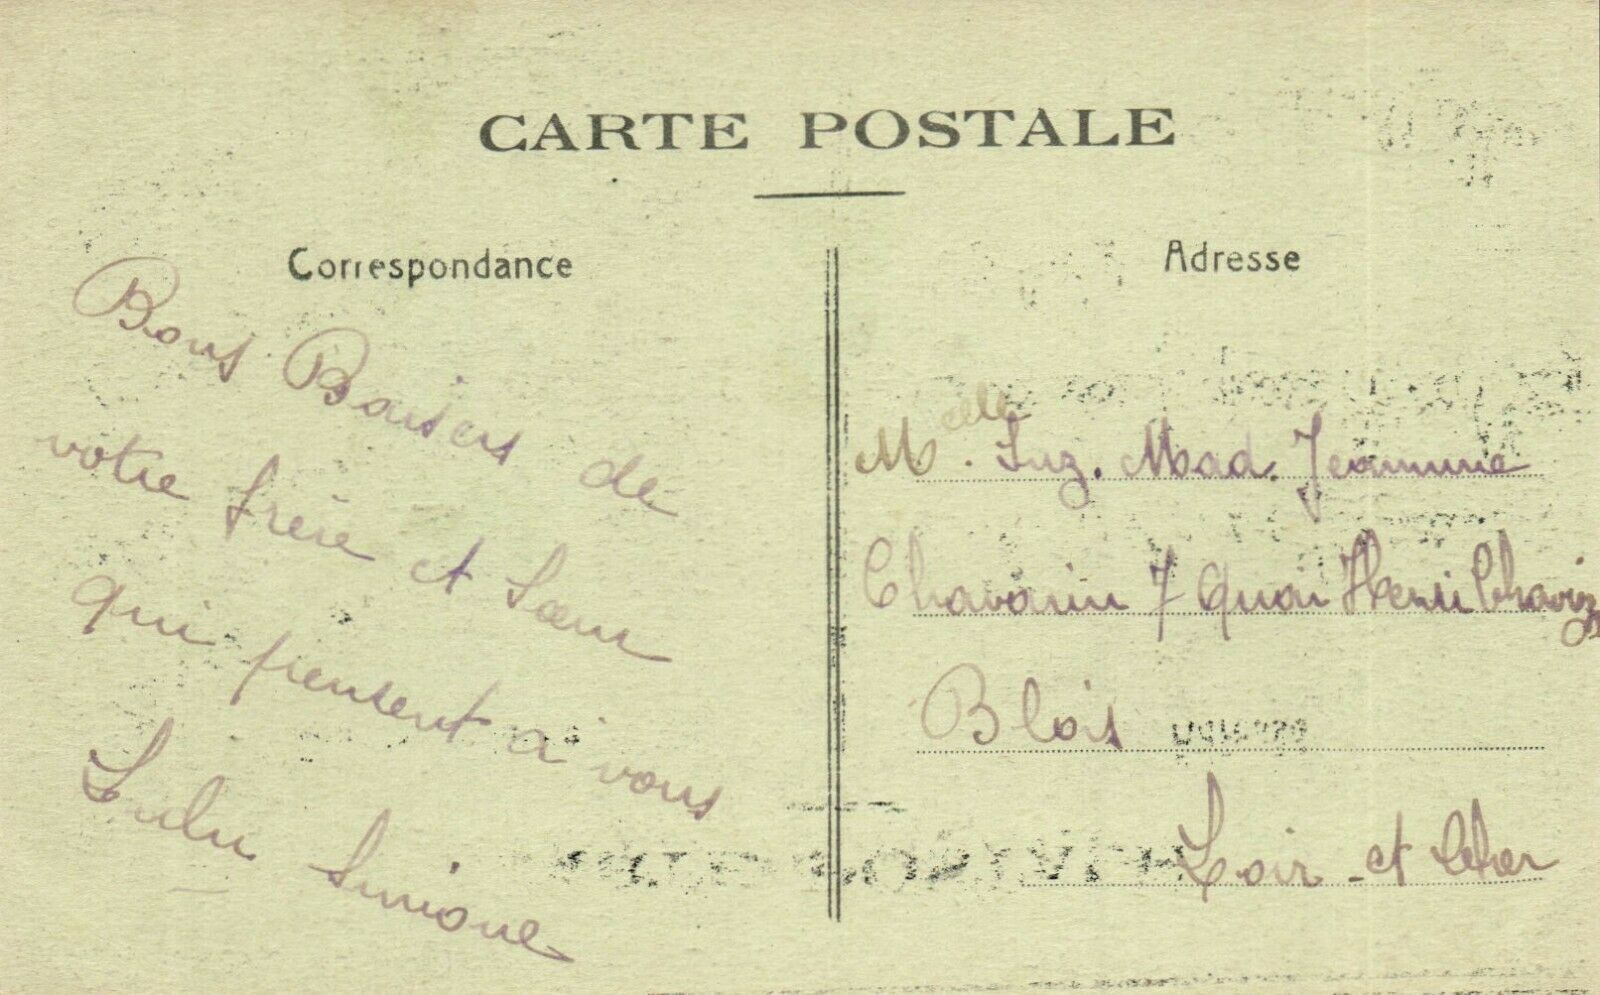 CARTE POSTALE
Correspondance
Bons Baisers de
votre frère et Sœur
qui pensent a vous
Lulu Simone
Adresse
Melle. Suz. Mad. Jeannine
Chavanin 7 Quai Henri Chavig
Blois
Loir-et Cher